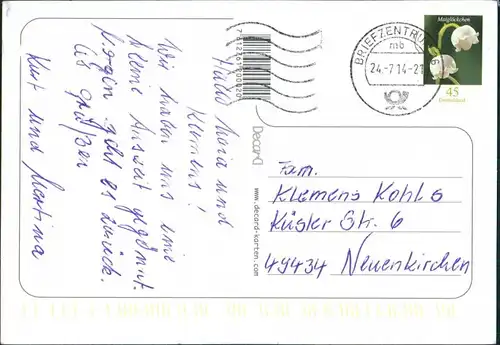 Hallo Maria und
Klemens!
Wir haben uns eine
kleine Auszeit gegönnt.
Morgen geht es zurück.
LG grüßen
Kurt und Martina
7 612261 200820
Decard
www.decard-karten.com
BRIEFZENTRUM
mb
24.-7.14-21
Maiglöckchen
45
Deutschland
Fam.
Klemens Kohls
Küsler Str. 6
49434 Neuenkirchen